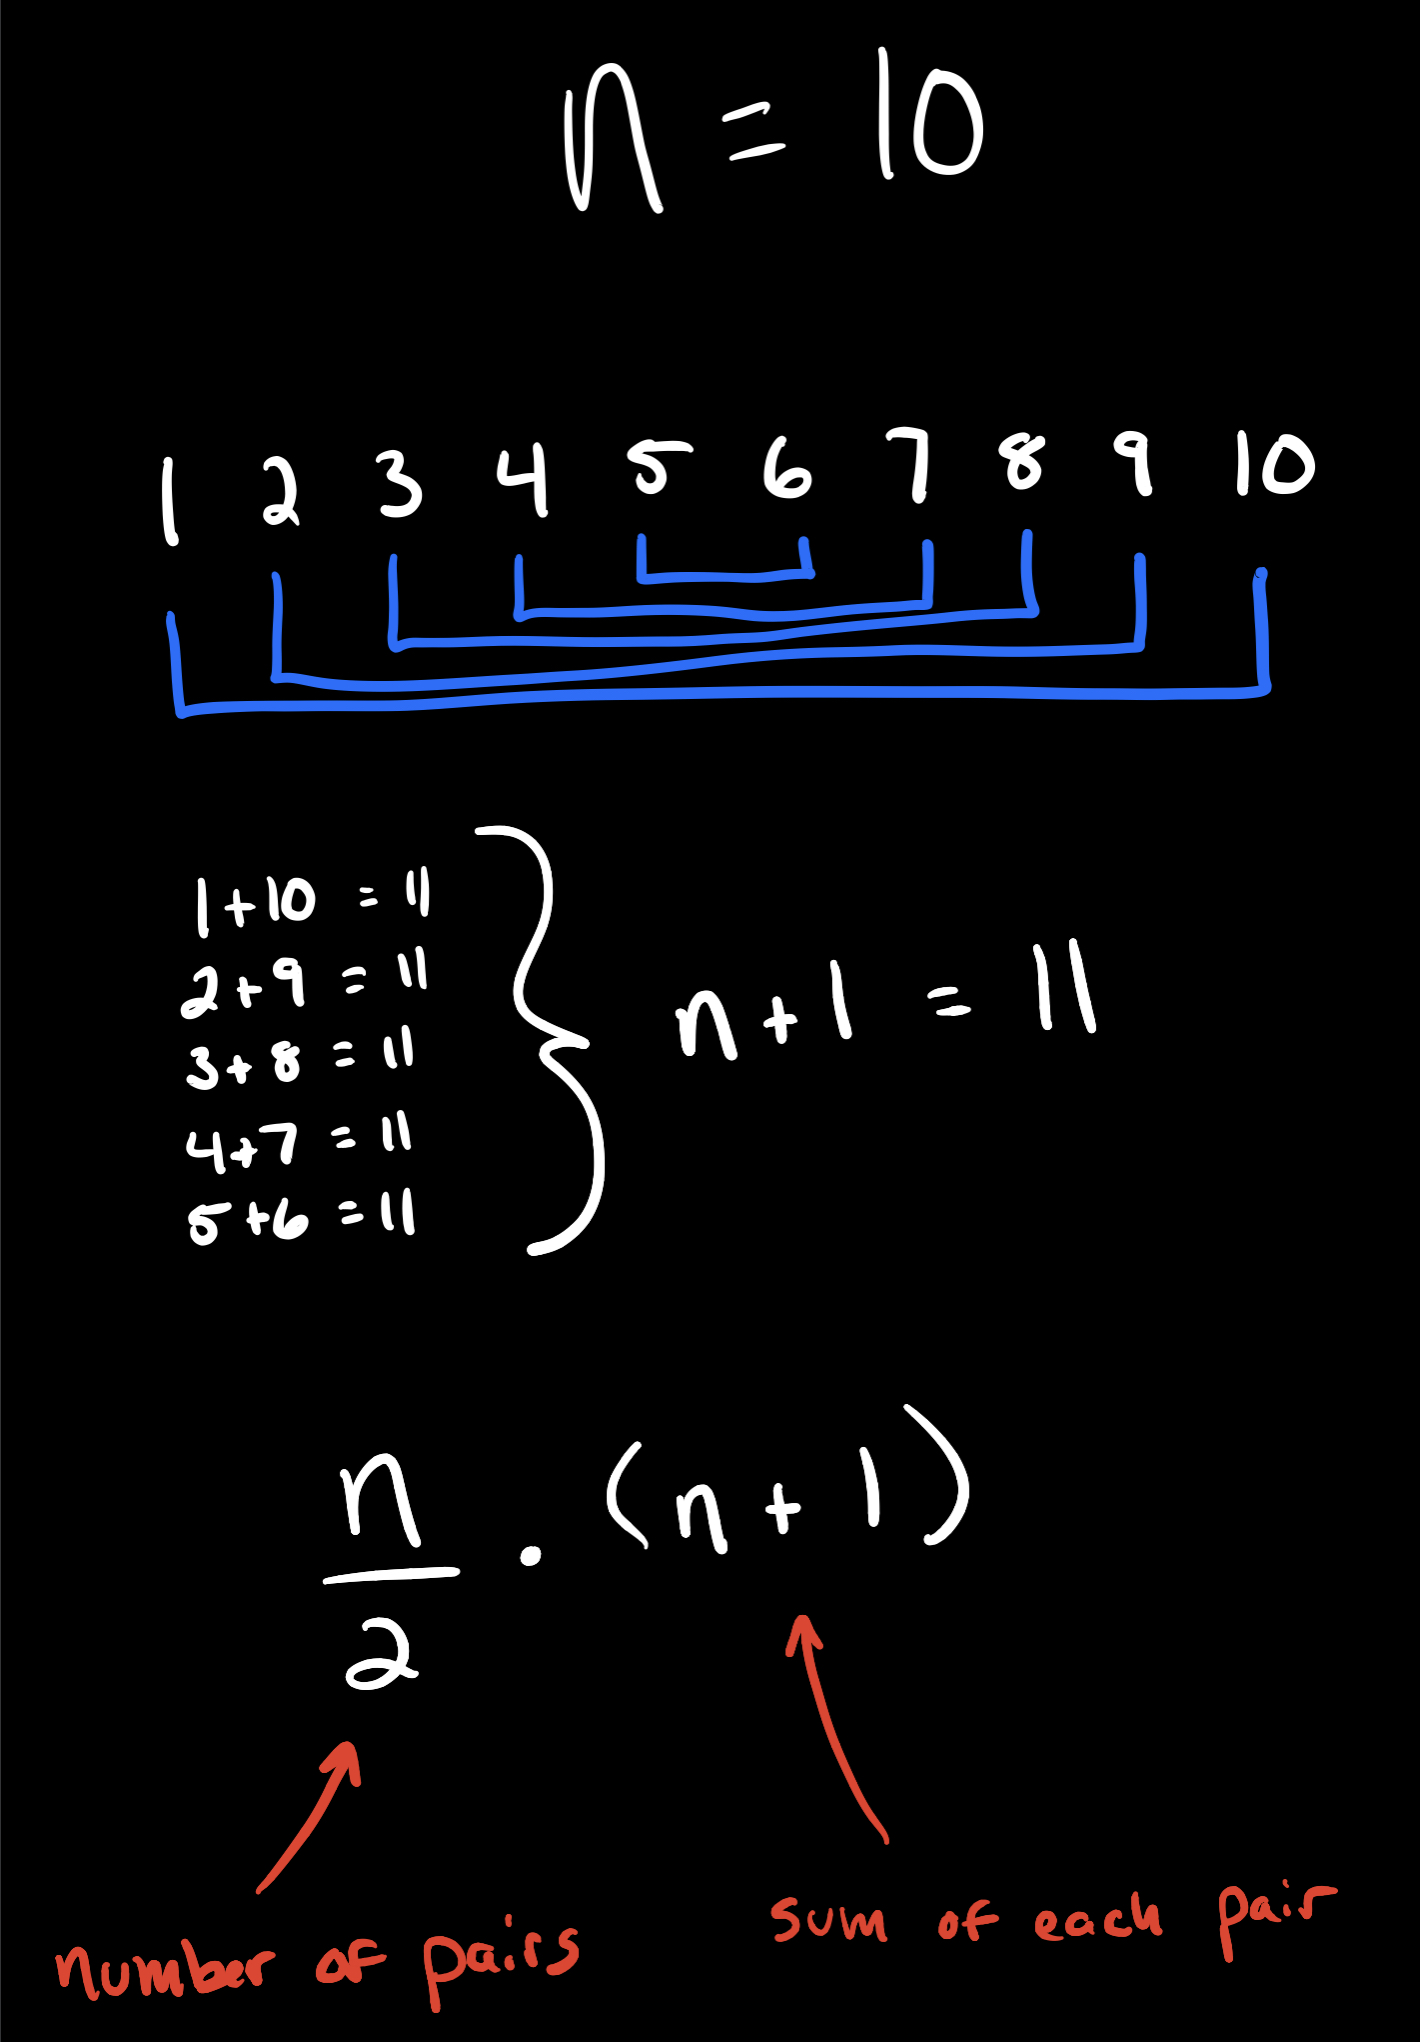 n = 10
1 2 3 4 5 6 7 8 9 10
1+10 = 11
2+9 = 11
3+8 = 11
4+7 = 11
5+6 = 11
n+1 = 11
n/2 · (n+1)
number of pairs
sum of each pair